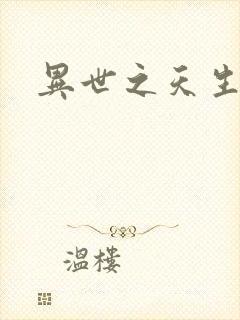 異世之天生
溫樓